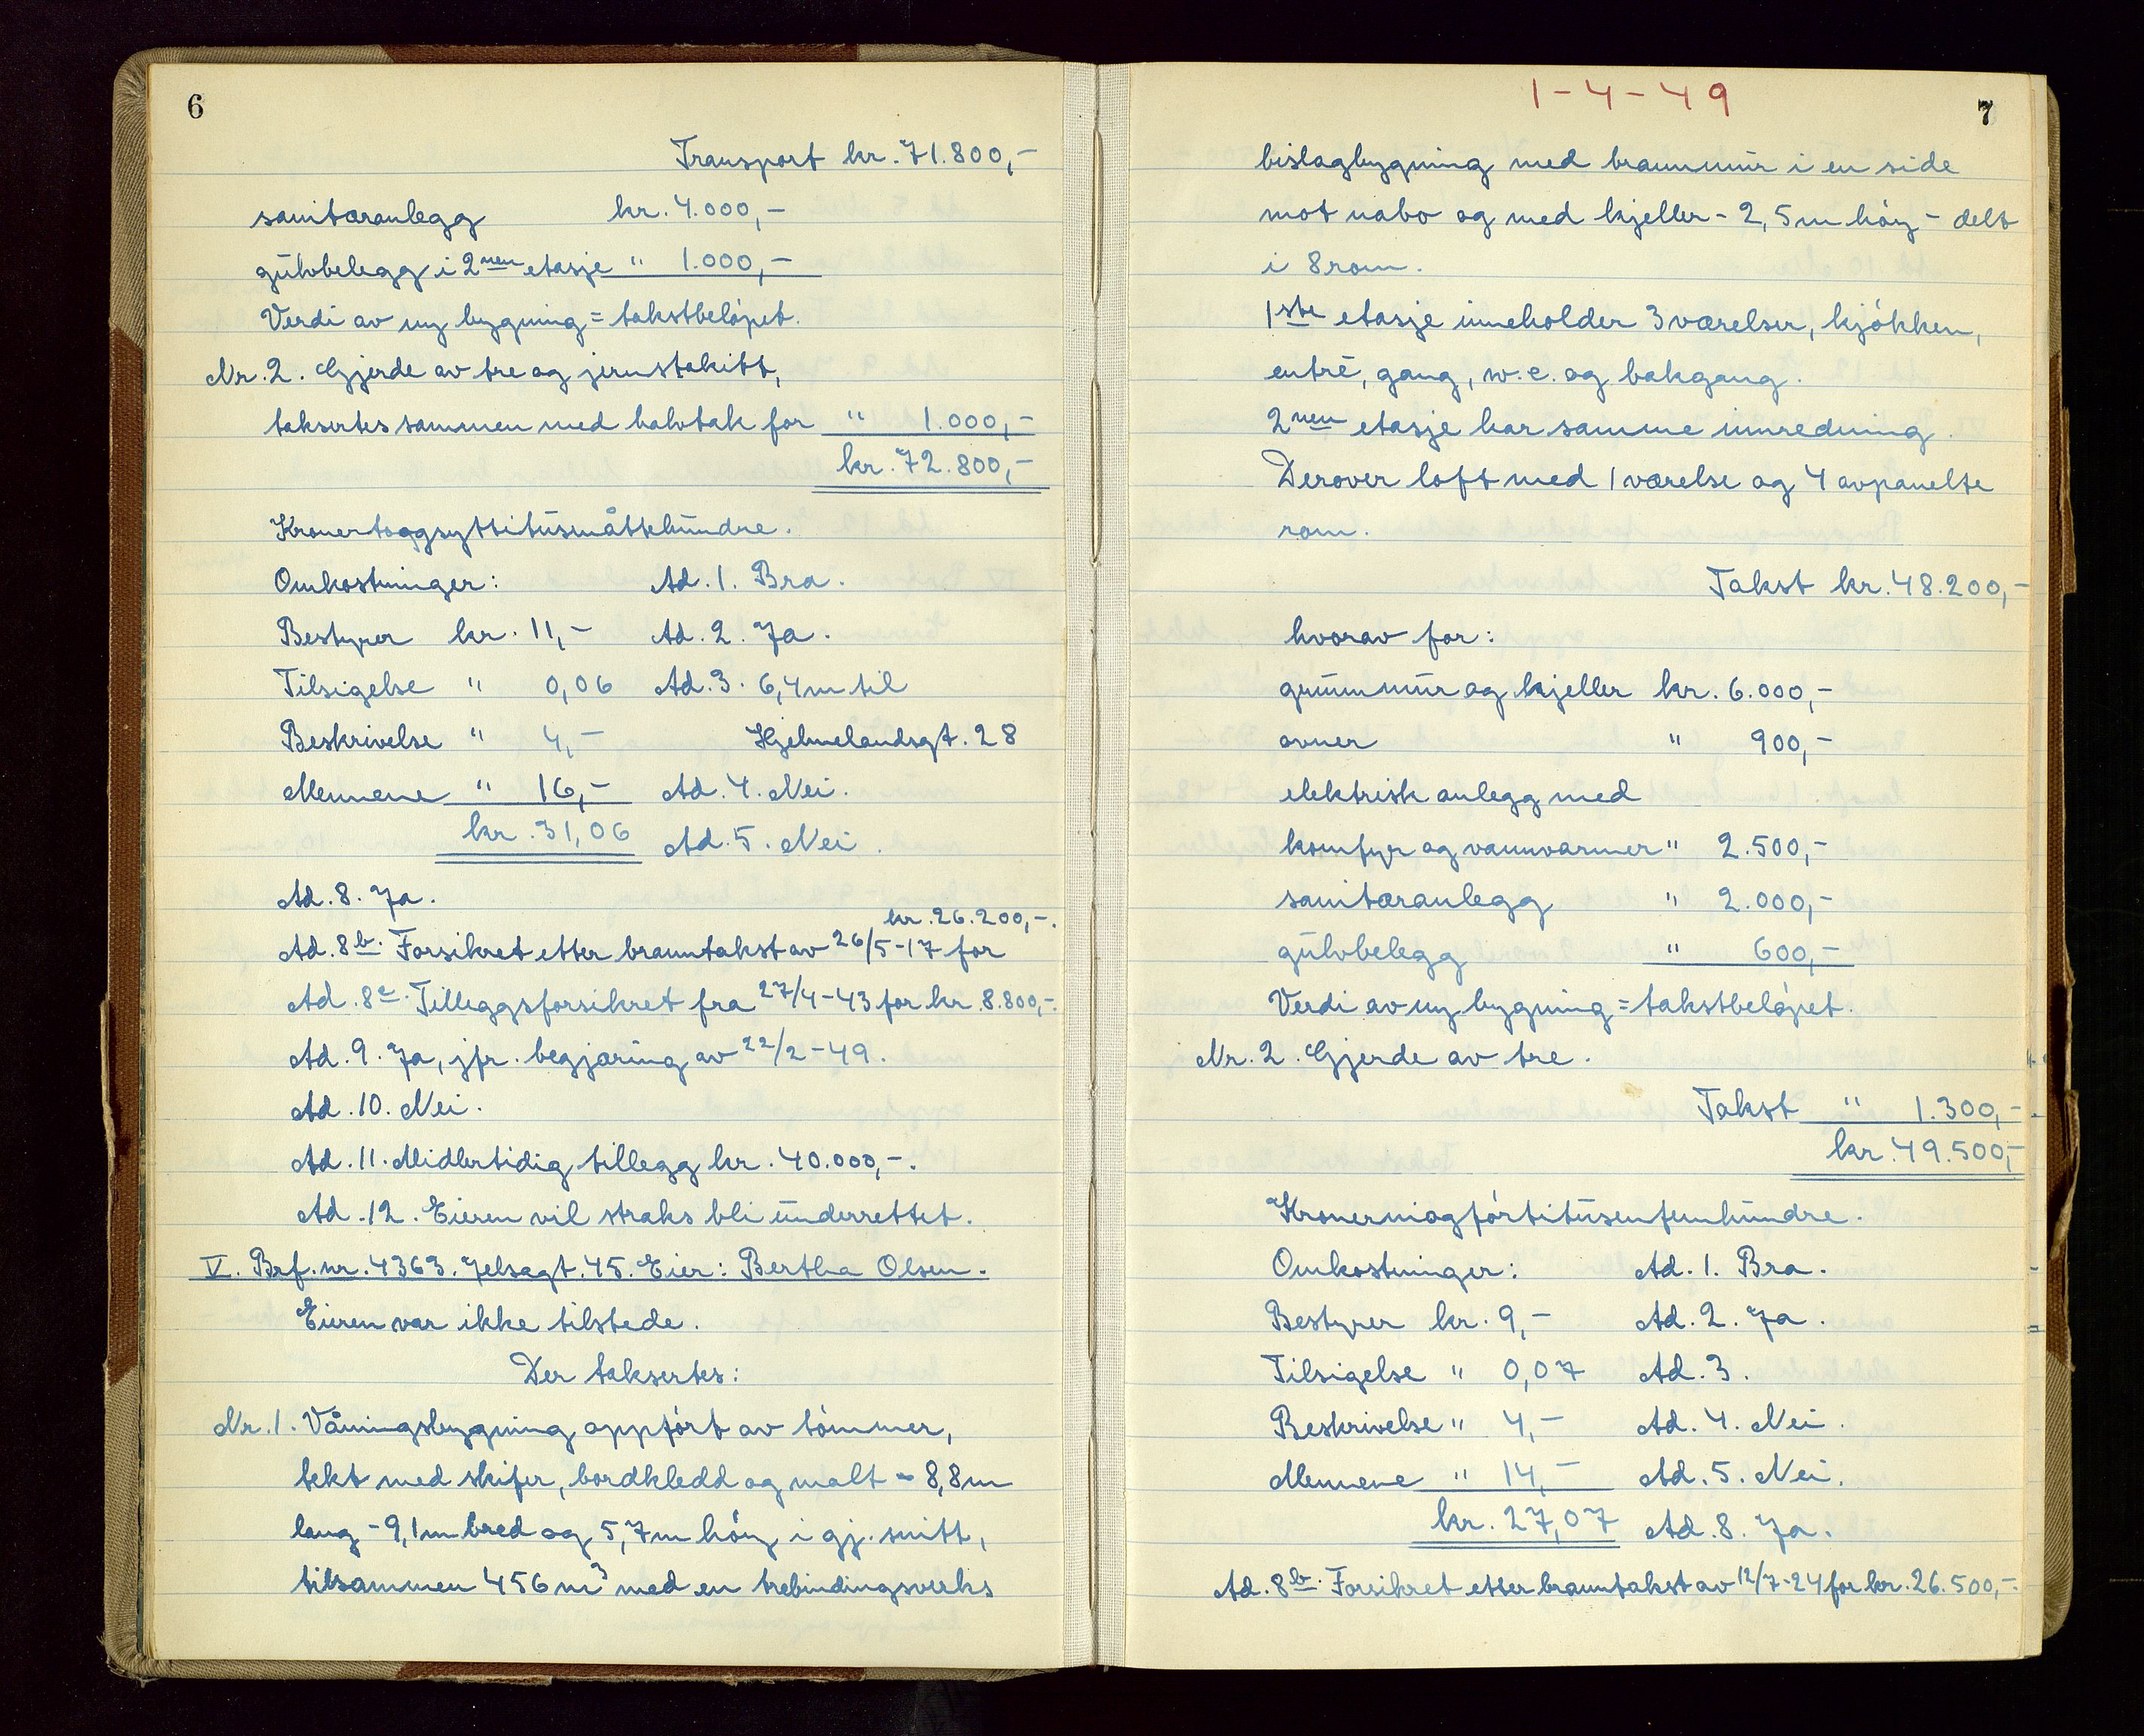 6
Transport kr. 71.800,-
sanitæranlegg kr. 4.000,-
gulvbelegg i 2nen etasje " 1.000,-
Verdi av ny bygning = takstbeløpet.
Nr. 2. Gjerde av tre og jernstakitt,
taksertes sammen med halvtak for " 1.000,-
kr. 72.800,-
Kronertoggsyttitusenåttehundre.
Omkostninger: Ad. 1. Bra.
Bestyrer kr. 11,- Ad. 2. Ja.
Tilsigelse " 0,06 Ad. 3. 6,4 m til
Beskrivelse " 4,- Hjelmelandsgt. 28
Mennene " 16,- Ad. 4. Nei.
kr. 31,06 Ad. 5. Nei.
Ad. 8. Ja.
kr. 26.200,-.
Ad. 8b. Forsikret etter branntakst av 26/5-17 for
Ad. 8c. Tilleggsforsikret fra 27/4-43 for kr. 8.800,-.
Ad. 9. Ja, jfr. begjæring av 22/2-49.
Ad. 10. Nei.
Ad. 11. Midlertidig tillegg kr. 40.000,-.
Ad. 12. Eieren vil straks bli underrettet.
V. Brf. nr. 4363. Jelsagt. 45. Eier: Bertha Olsen.
Eieren var ikke tilstede.
Der taksertes:
Nr. 1. Våningsbygning oppført av tømmer,
tekt med skifer, bordkledd og malt - 8,8 m
lang - 9,1 m bred og 5,7 m høy i gj. snitt,
tilsammen 456 m3 med en trebindingsverks
1-4-49
7
bislagbygning med brannmur i en side
mot nabo og med kjeller - 2,5 m høy - delt
i 8 rom.
1ste etasje inneholder 3 værelser, kjøkken,
entré, gang, w.c. og bakgang.
2nen etasje har samme innredning.
Derover loft med 1 værelse og 4 avpanelte
rom.
Takst kr. 48.200,-
hvorav for:
grunnmur og kjeller kr. 6.000,-
ovner " 900,-
elektrisk anlegg med
komfyr og vannvarmer " 2.500,-
sanitæranlegg " 2.000,-
gulvbelegg " 600,-
Verdi av ny bygning = takstbeløpet.
Nr. 2. Gjerde av tre.
Takst " 1.300,-
kr. 49.500,-
Kronerniogførtitusenfemhundre.
Omkostninger: Ad. 1. Bra.
Bestyrer kr. 9,- Ad. 2. Ja.
Tilsigelse " 0,07 Ad. 3.
Beskrivelse " 4,- Ad. 4. Nei.
Mennene " 14,- Ad. 5. Nei.
kr. 27,07 Ad. 8. Ja.
Ad. 8b. Forsikret etter branntakst av 12/7-24 for kr. 26.500,-.